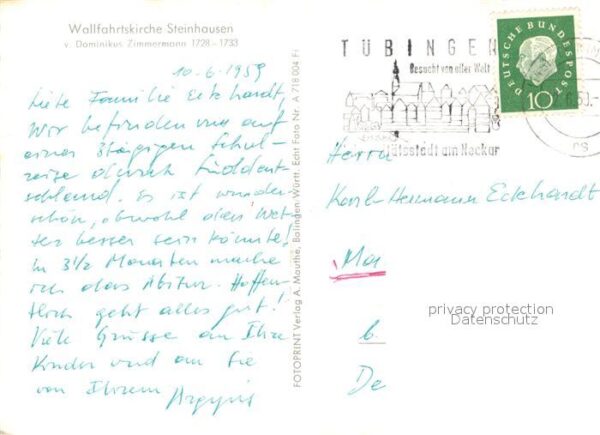 Wallfahrtskirche Steinhausen
v. Dominikus Zimmermann 1728–1733
10.6.1959
Liebe Familie Eckhardt,
Wir befinden uns auf
einer 8tägigen Schul-
reise durch Süddeut-
schland. Es ist wunder-
schön, obwohl das Wet-
ter besser sein könnte!
In 3 1/2 Monaten mache
ich das Abitur. Hoffen-
tlich geht alles gut!
Viele Grüsse an Ihre
Kinder und an Sie
von Ihrem
FOTOPRINT Verlag A. Mauthe, Balingen-Württ. Echt Foto Nr. A 718 004 Fi
TÜBINGEN
Besucht von aller Welt
itätsstadt am Neckar
DEUTSCHE BUNDESPOST
10
Herrn
Karl-Hermann Eckhardt
Ma
privacy protection
Datenschutz
b.
De